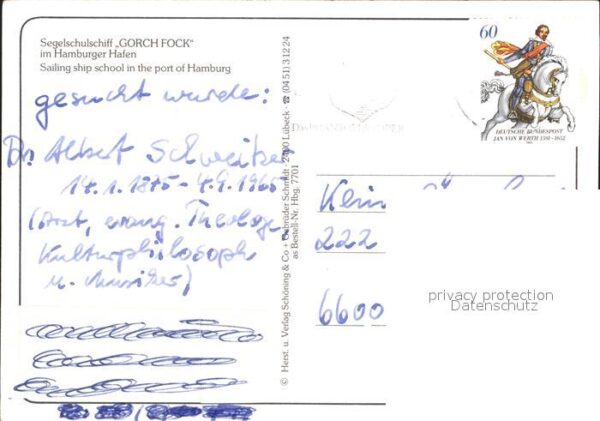 Segelschulschiff „GORCH FOCK“
im Hamburger Hafen
Sailing ship school in the port of Hamburg
gesucht wurde:
Dr. Albert Schweitzer
14.1.1875 - 4.9.1965
(Arzt, evang. Theologe,
Kulturphilosoph
u. Musiker)
© Herst. u. Verlag Schöning & Co + Gebrüder Schmidt · 2400 Lübeck · ☎ (04 51) 3 12 24
as Bestell-Nr. Hbg. 7701
60
DEUTSCHE BUNDESPOST
JAN VON WERTH 1591 - 1652
222
6600
privacy protection
Datenschutz